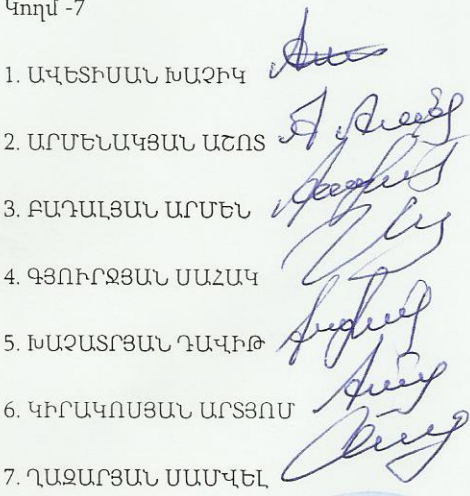 Կողմ -7
1. ԱՎԵՏԻՍԱՆ ԽԱՉԻԿ
2. ԱՐՄԵՆԱԿՅԱՆ ԱՇՈՏ
3. ԲԱԴԱԼՅԱՆ ԱՐՄԵՆ
4. ԳՅՈՒՐՋՅԱՆ ՍԱՀԱԿ
5. ԽԱՉԱՏՐՅԱՆ ԴԱՎԻԹ
6. ԿԻՐԱԿՈՍՅԱՆ ԱՐՏՅՈՄ
7. ՂԱԶԱՐՅԱՆ ՍԱՄՎԵԼ